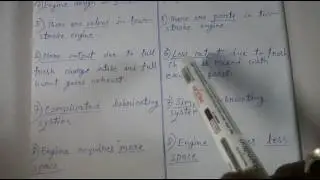 4) Engine design is
5) There are valves in four-
stroke engine.
6) More output due to full
fresh charge intake and full
burnt gases exhaust.
7) Complicated lubricating
system
8) Engine requires more
space
5) There are ports in two-
stroke engine.
6) Less output due to fresh
mixed with
7) lubricating
system
8) Engine less
space